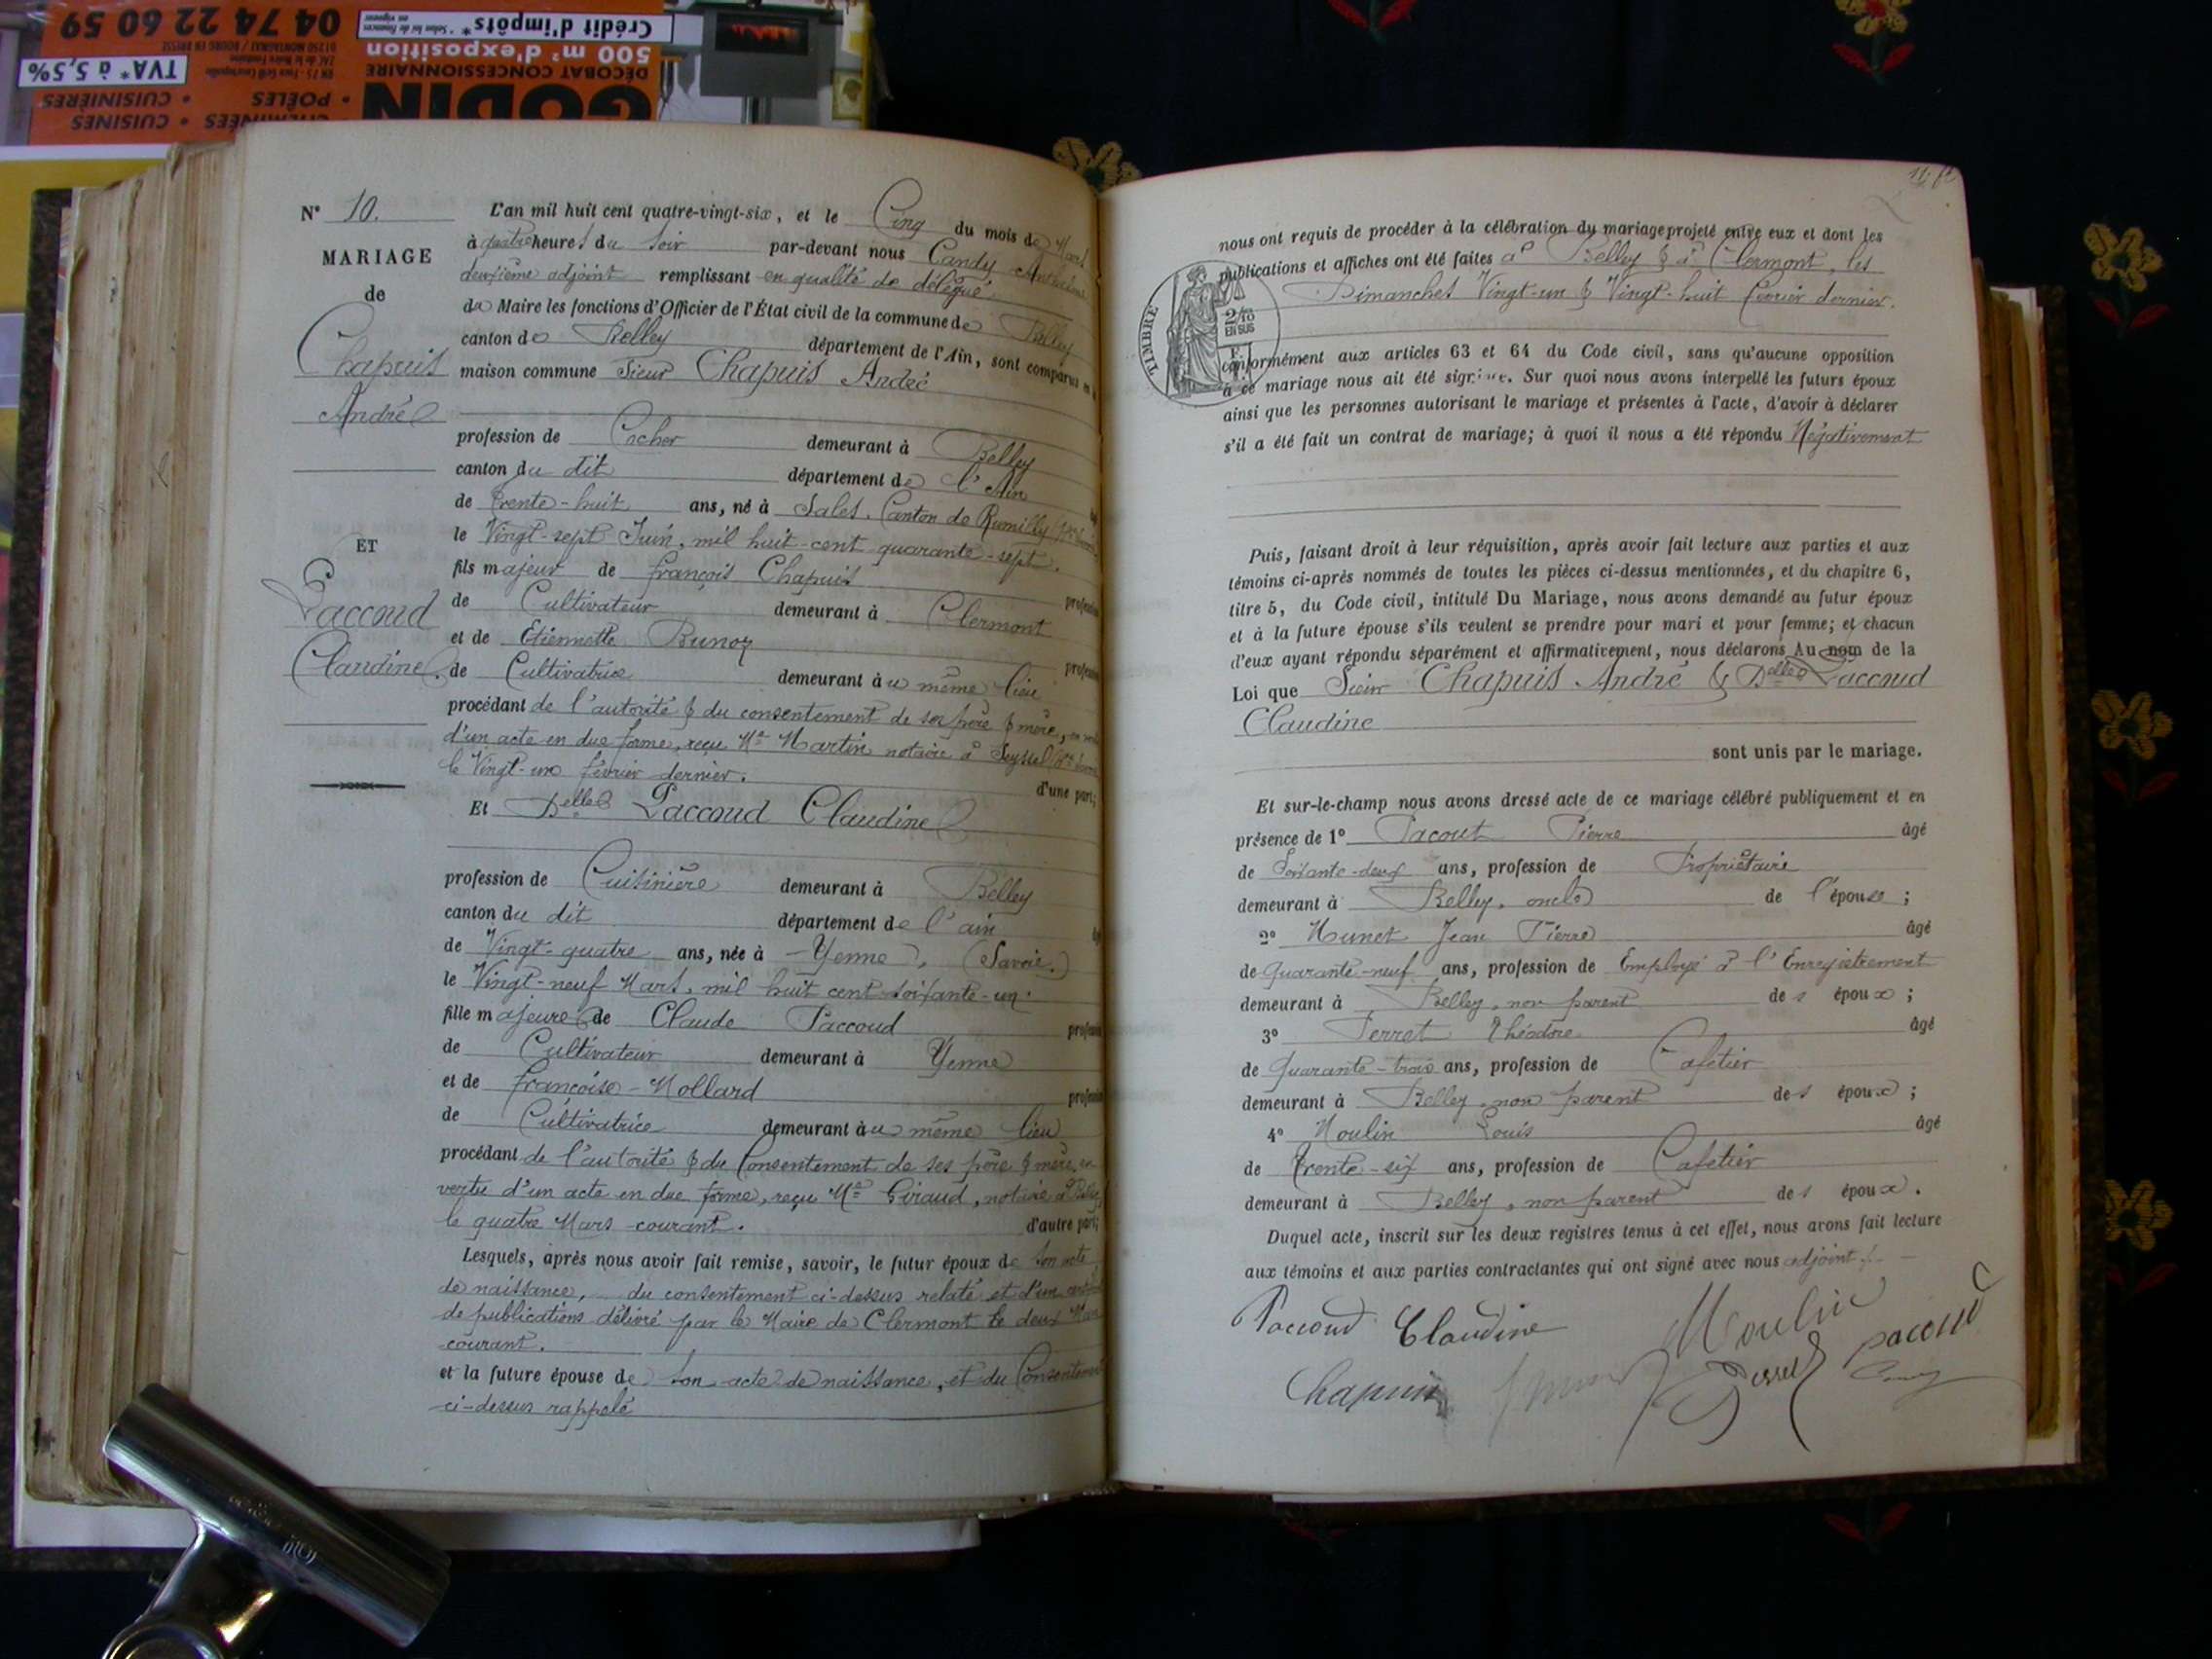 04 74 22 60 59
Crédit d'impôts*
500 m² d'exposition
DÉCOBAT CONCESSIONNAIRE
TVA* à 5,5%
GODIN
• POÊLES • CUISINIÈRES
CHEMINÉES • CUISINES
N° 10.
MARIAGE
de
Chapuis
André
ET
Paccoud
Claudine.
L'an mil huit cent quatre-vingt-six, et le Cinq du mois de Mars
à quatre heures du soir par-devant nous Candy Anthelme
deuxième adjoint remplissant en qualité de délégué
du Maire les fonctions d'Officier de l'État civil de la commune de Belley
canton de Belley département de l'Ain, sont comparus en la
maison commune Sieur Chapuis André
profession de Cocher demeurant à Belley
canton du dit département de l'Ain
de trente-huit ans, né à Sales, Canton de Rumilly
le Vingt-sept Juin, mil huit-cent quarante-sept.
fils majeur de françois Chapuis profession
de Cultivateur demeurant à Clermont
et de Etiennette Bunoz profession
de Cultivatrice demeurant au même lieu
procédant de l'autorité & du consentement de ses père & mère,
d'un acte en due forme, reçu Me Martin notaire à Seyssel
le Vingt-un février dernier. d'une part;
Et Delle Paccoud Claudine
profession de Cuisinière demeurant à Belley
canton du dit département de l'ain
de Vingt-quatre ans, née à Yenne, (Savoie.)
le Vingt-neuf Mars, mil huit cent soixante-un.
fille majeure de Claude Paccoud profession
de Cultivateur demeurant à Yenne
et de françoise Mollard profession
de Cultivatrice demeurant au même lieu
procédant de l'autorité & du Consentement de ses père & mère, en
vertu d'un acte en due forme, reçu Me Giraud, notaire à Belley
le quatre Mars courant. d'autre part;
Lesquels, après nous avoir fait remise, savoir, le futur époux de son acte
de naissance, du consentement ci-dessus relaté et d'un certificat
de publications délivré par le Maire de Clermont le deux Mars
courant.
et la future épouse de son acte de naissance, et du Consentement
ci-dessus rappelé
nous ont requis de procéder à la célébration du mariage projeté entre eux et dont les
publications et affiches ont été faites à Belley & à Clermont, les
Dimanches Vingt-un & Vingt-huit février dernier.
TIMBRE
2/10
EN SUS
conformément aux articles 63 et 64 du Code civil, sans qu'aucune opposition
à ce mariage nous ait été signifiée. Sur quoi nous avons interpellé les futurs époux
ainsi que les personnes autorisant le mariage et présentes à l'acte, d'avoir à déclarer
s'il a été fait un contrat de mariage; à quoi il nous a été répondu Négativement
Puis, faisant droit à leur réquisition, après avoir fait lecture aux parties et aux
témoins ci-après nommés de toutes les pièces ci-dessus mentionnées, et du chapitre 6,
titre 5, du Code civil, intitulé Du Mariage, nous avons demandé au futur époux
et à la future épouse s'ils veulent se prendre pour mari et pour femme; et chacun
d'eux ayant répondu séparément et affirmativement, nous déclarons Au nom de la
Loi que Sieur Chapuis André & Delle Paccoud
Claudine
sont unis par le mariage.
Et sur-le-champ nous avons dressé acte de ce mariage célébré publiquement et en
présence de 1° Pacout Pierre âgé
de Soixante-deux ans, profession de Propriétaire
demeurant à Belley, oncle de l'épouse ;
2° Munet Jean Pierre âgé
de Quarante-neuf ans, profession de Employé à l'Enregistrement
demeurant à Belley, non parent des époux ;
3° Perret Théodore âgé
de Quarante-trois ans, profession de Cafetier
demeurant à Belley, non parent des époux ;
4° Moulin Louis âgé
de trente-six ans, profession de Cafetier
demeurant à Belley, non parent des époux.
Duquel acte, inscrit sur les deux registres tenus à cet effet, nous avons fait lecture
aux témoins et aux parties contractantes qui ont signé avec nous adjoint.
Paccoud Claudine Moulin pacoud
Chapuis